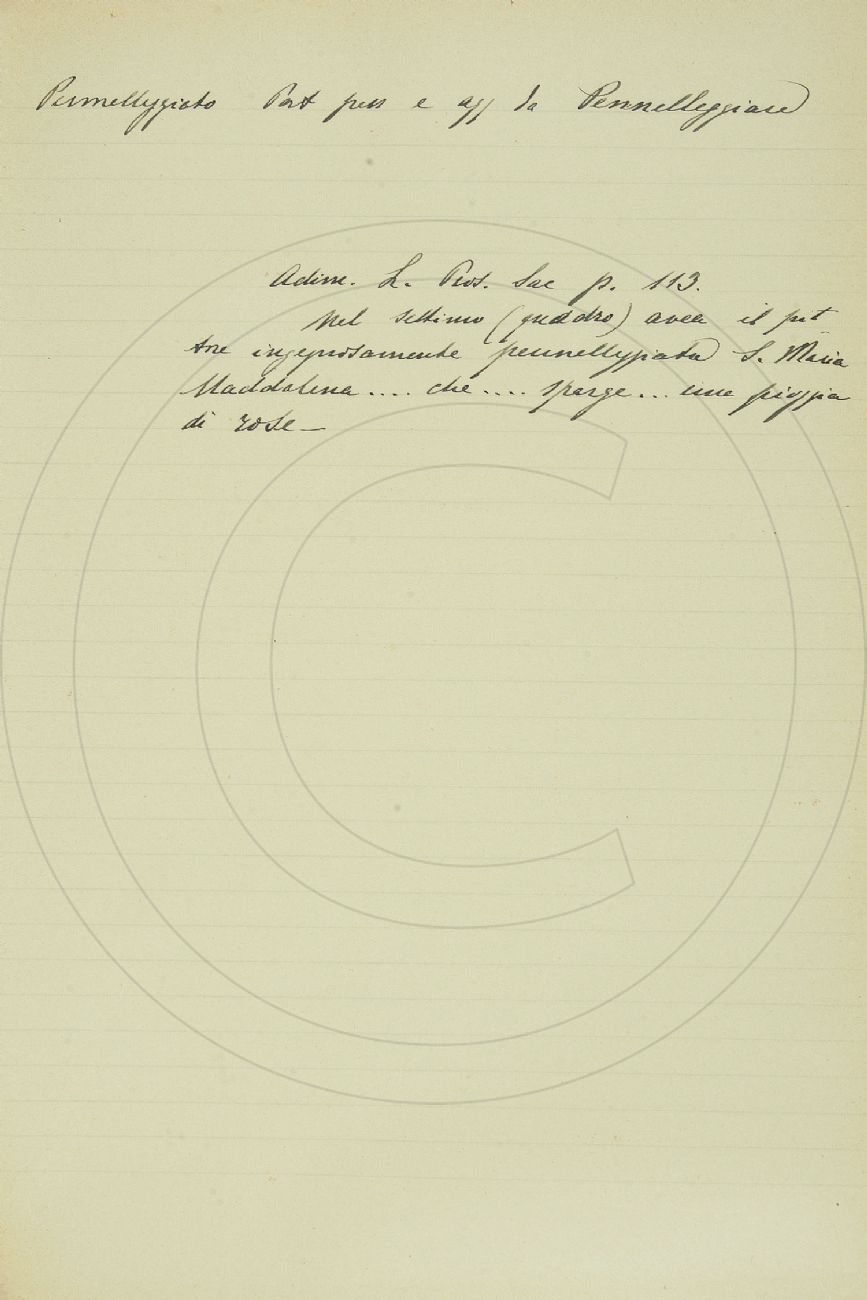 Pennelleggiato Part pass e agg da Pennelleggiare
Adim. L. Pros. Sac p. 113.
Nel settimo (quadro) avea il pit
tore ingegnosamente pennelleggiata S. Maria
Maddalena .... che .... sparge ... una pioggia
di rose —